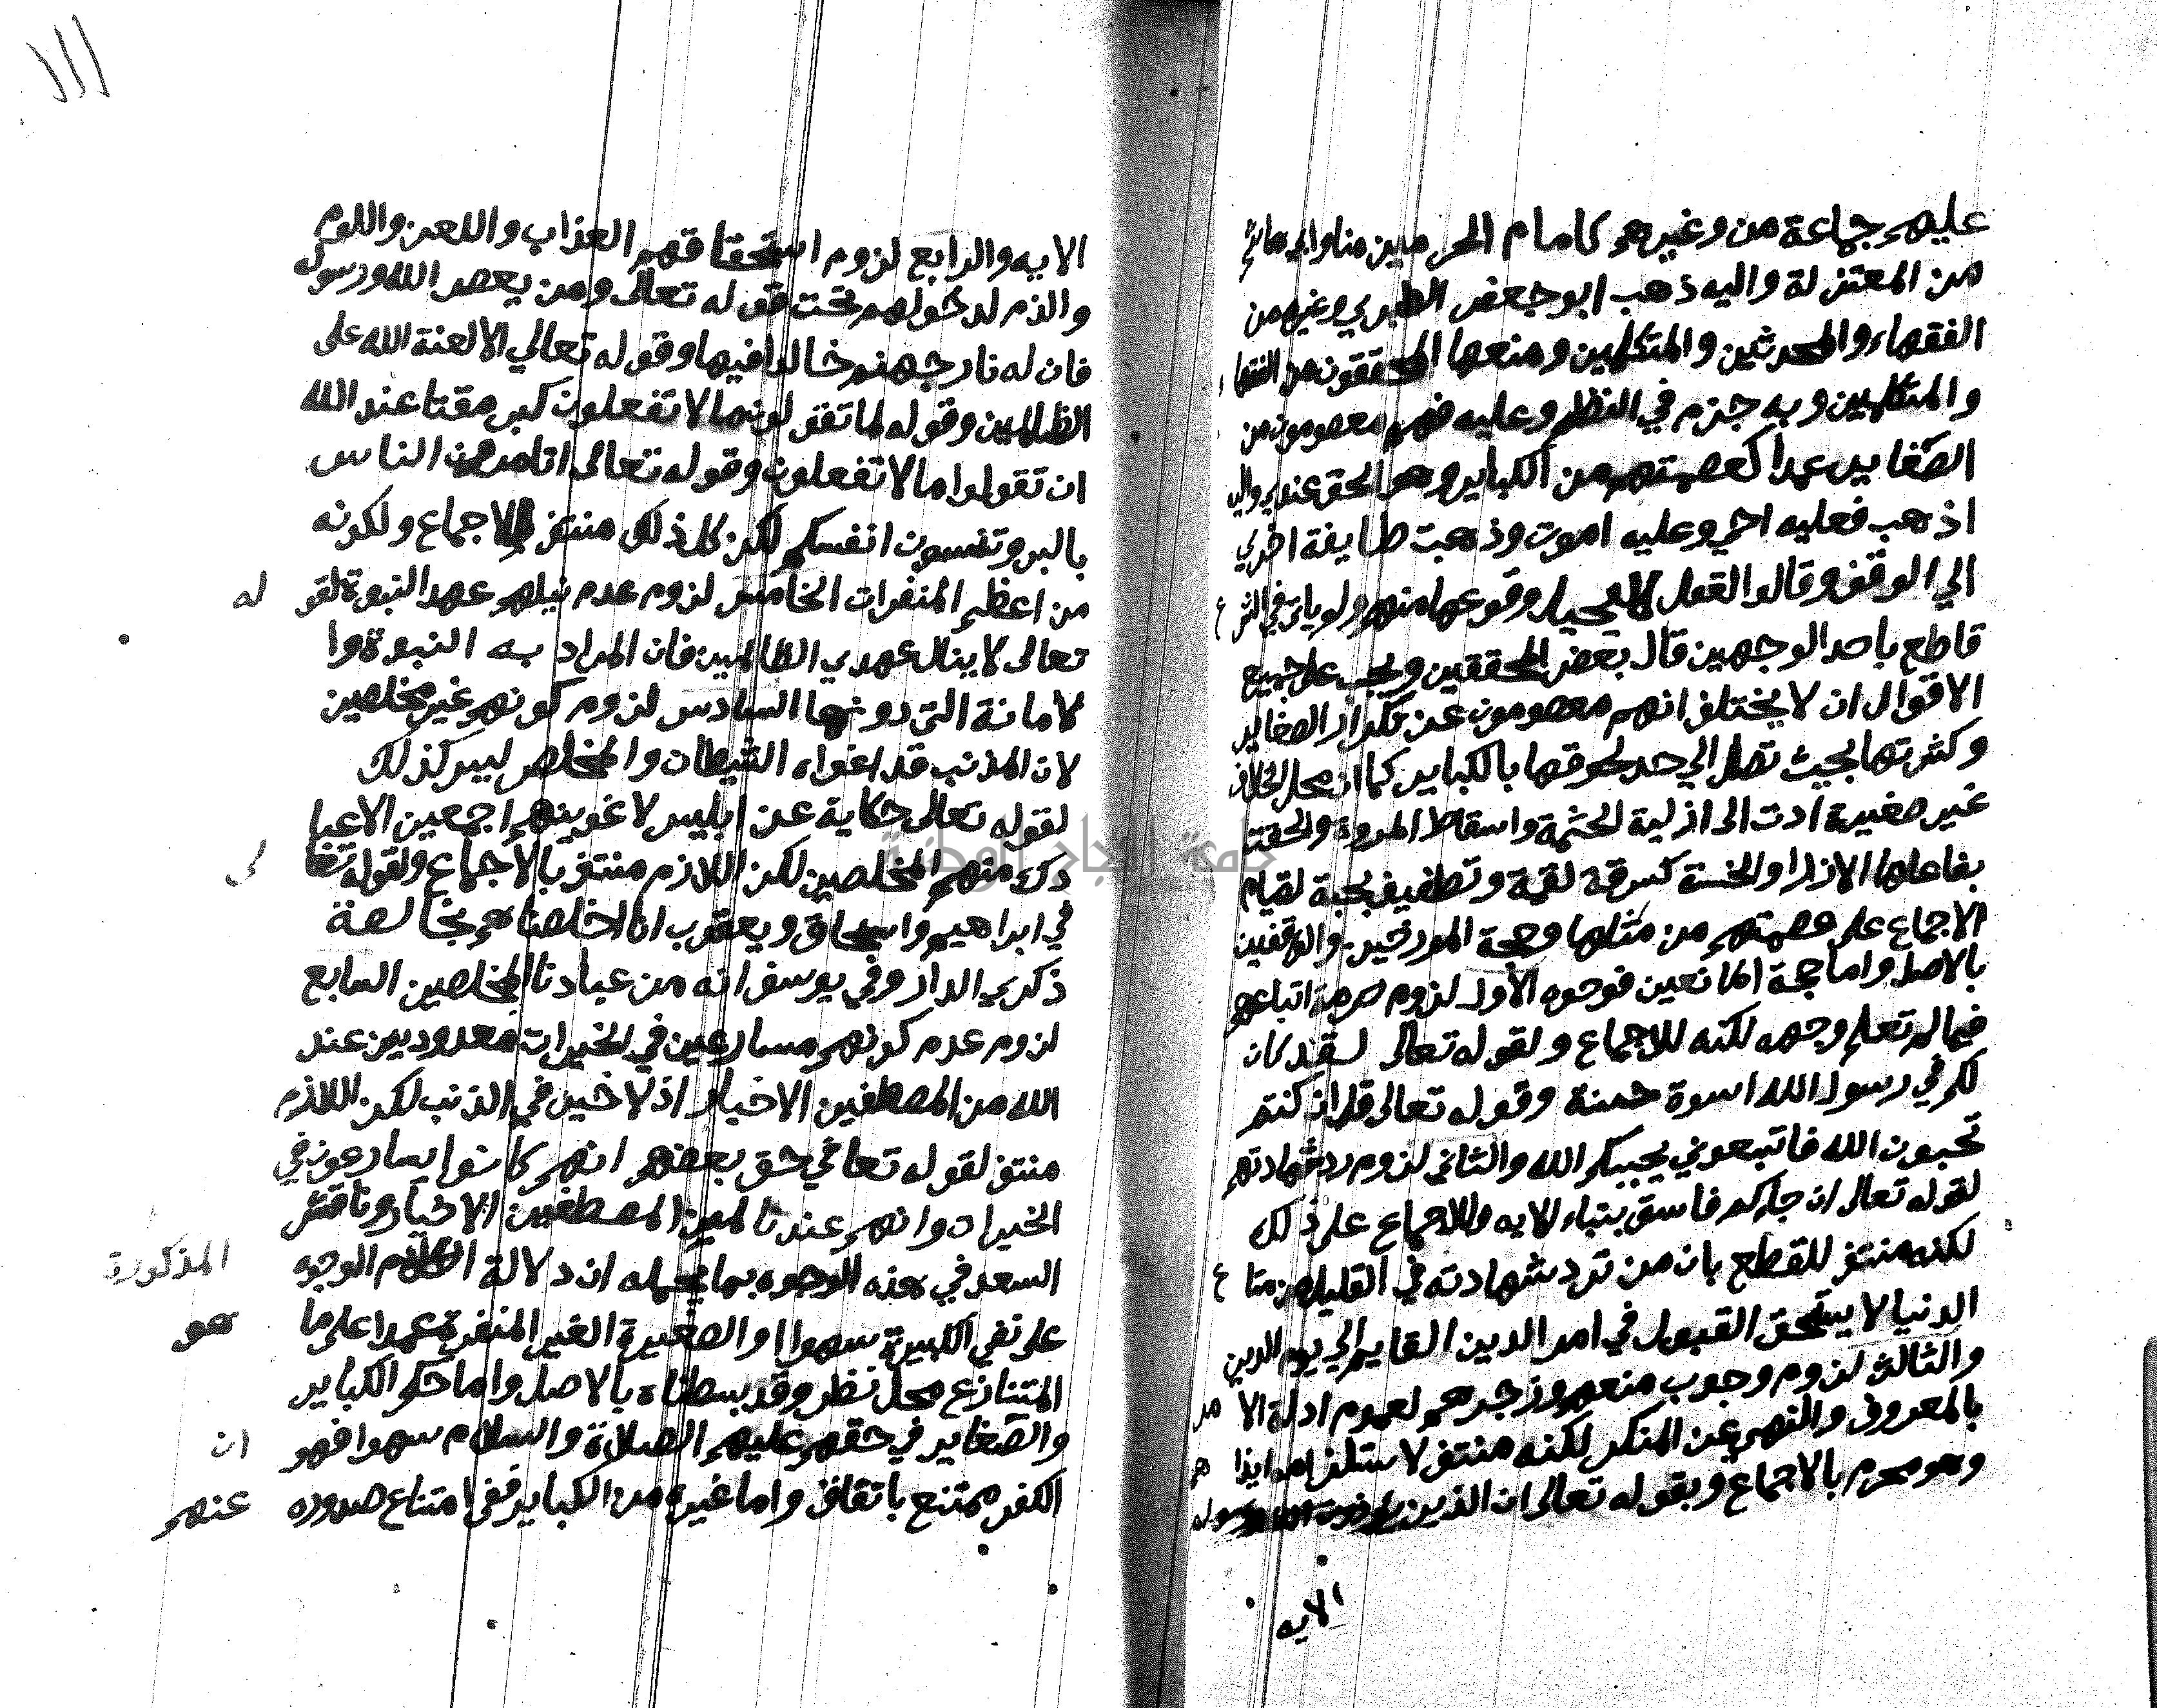 عليهم جماعة من وغيرهم كامام الحرمين منا وابي هاشم
من المعتزلة واليه ذهب ابو جعفر الطبري وغيره من
الفقهاء والمحدثين والمتكلمين ومنعها المحققون من الفقهاء
والمتكلمين وبه جزم في النظم وعليه فهم معصومون من
الصغاير عمدا كعصمتهم من الكباير وهو الحق عندي واليه
اذهب فعليه احيى وعليه اموت وذهبت طايفة اخري
الي الوقف وقالوا العقل لا يحيل وقوعها منهم ولم يات في الشرع
قاطع باحد الوجهين قال بعض المحققين ويجب على جميع
الاقوال ان لا يختلف انهم معصومون عن تكرار الصغاير
وكثرتها بحيث تصل الي حد لحوقها بالكباير كما ان محل الخلاف
غير صغيرة ادت الى ازلية الحشمة واسقاط المروة والحقت
بفاعلها الازرا والخسة كسرقة لقمة وتطفيف بحبة لقيام
الاجماع على عصمتهم من مثلها وحجة المورخين والواقفين
بالاصل واما حجة المانعين فوجوه الأول لزوم حرمة اتباعهم
فيما لم تعلم وجهه لكنه للاجماع ولقوله تعالى لقد كان
لكم في رسول الله اسوة حسنة وقوله تعالى قل ان كنتم
تحبون الله فاتبعوني يحببكم الله والثاني لزوم رد شهادتهم
لقوله تعالى ان جاركم فاسق بنباء الايه والاجماع على ذلك
لكنه منتف للقطع بان من ترد شهادته في القليل من متاع
الدنيا لا يستحق القبول في امر الدين القايم الي يوم الدين
والثالث لزوم وجوب منعهم وزجرهم لعموم ادلة الامر
بالمعروف والنهي عن المنكر لكنه منتف لاستلزامه ايذاهم
وهو محرم بالاجماع وبقوله تعالى ان الذين يوذون الله ورسوله
الايه
ااا
الايه والرابع لزوم استحقاقهم العذاب واللعن واللوم
والذم لدخولهم تحت قوله تعالى ومن يعص الله ورسوله
فان له نار جهنم خالدا فيها وقوله تعالي الا لعنة الله على
الظالمين وقوله لما تقولون ما لا تفعلون كبر مقتا عند الله
ان تقولوا ما لا تفعلون وقوله تعالى اتامرون الناس
بالبر وتنسون انفسكم لكن كل ذلك منتف بالاجماع ولكونه
من اعظم المنفرات الخامس لزوم عدم نيلهم عهد النبوة لقوله
تعالى لا ينال عهدي الظالمين فان المراد به النبوة وا
لامانة التي دونها السادس لزوم كونهم غير مخلصين
لان المذنب قد اغواه الشيطان والمخلص ليس كذلك
لقوله تعالى حكاية عن ابليس لاغوينهم اجمعين الا عبا
دك منهم المخلصين لكن اللازم منتف بالاجماع ولقوله تعالى
في ابراهيم واسحاق ويعقوب انا اخلصناهم بخالصة
ذكري الدار وفي يوسف انه من عبادنا المخلصين السابع
لزوم عدم كونهم مسارعين في الخيرات معدوديين عند
الله من المصطفين الاخيار اذ لا خير في الذنب لكن اللازم
منتف لقوله تعا في حق بعضهم انهم كانوا يسارعون في
الخيرات وانهم عندنا لمن المصطفين الاخيار وناقش
السعد في هذه الوجوه بما يحصله ان دلالة الوجوه المذكورة
على نفي الكبيرة سهوا والصغيرة الغير المنفرة عمدا على ما هو
المتنازع محل نظر وقد بسطناه بالاصل واما حكم الكباير
والصغاير في حقهم عليهم الصلاة والسلام سهوا فهو ان
الكفر ممتنع باتفاق واما غيره من الكباير ففي امتناع صدوره عنهم
جامعة النجاح الوطنية